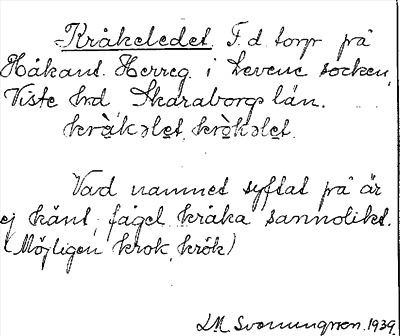 Kråkeledet. F.d. torp på
Håkant. Herreg. i Levene socken,
Viste hrd, Skaraborgs län.
kràkəlet, kròkəlet.
Vad namnet syftat på är
ej känt, fågel kråka sannolikt.
(Möjligen krok, krök)
LM Svenungsson. 1939.